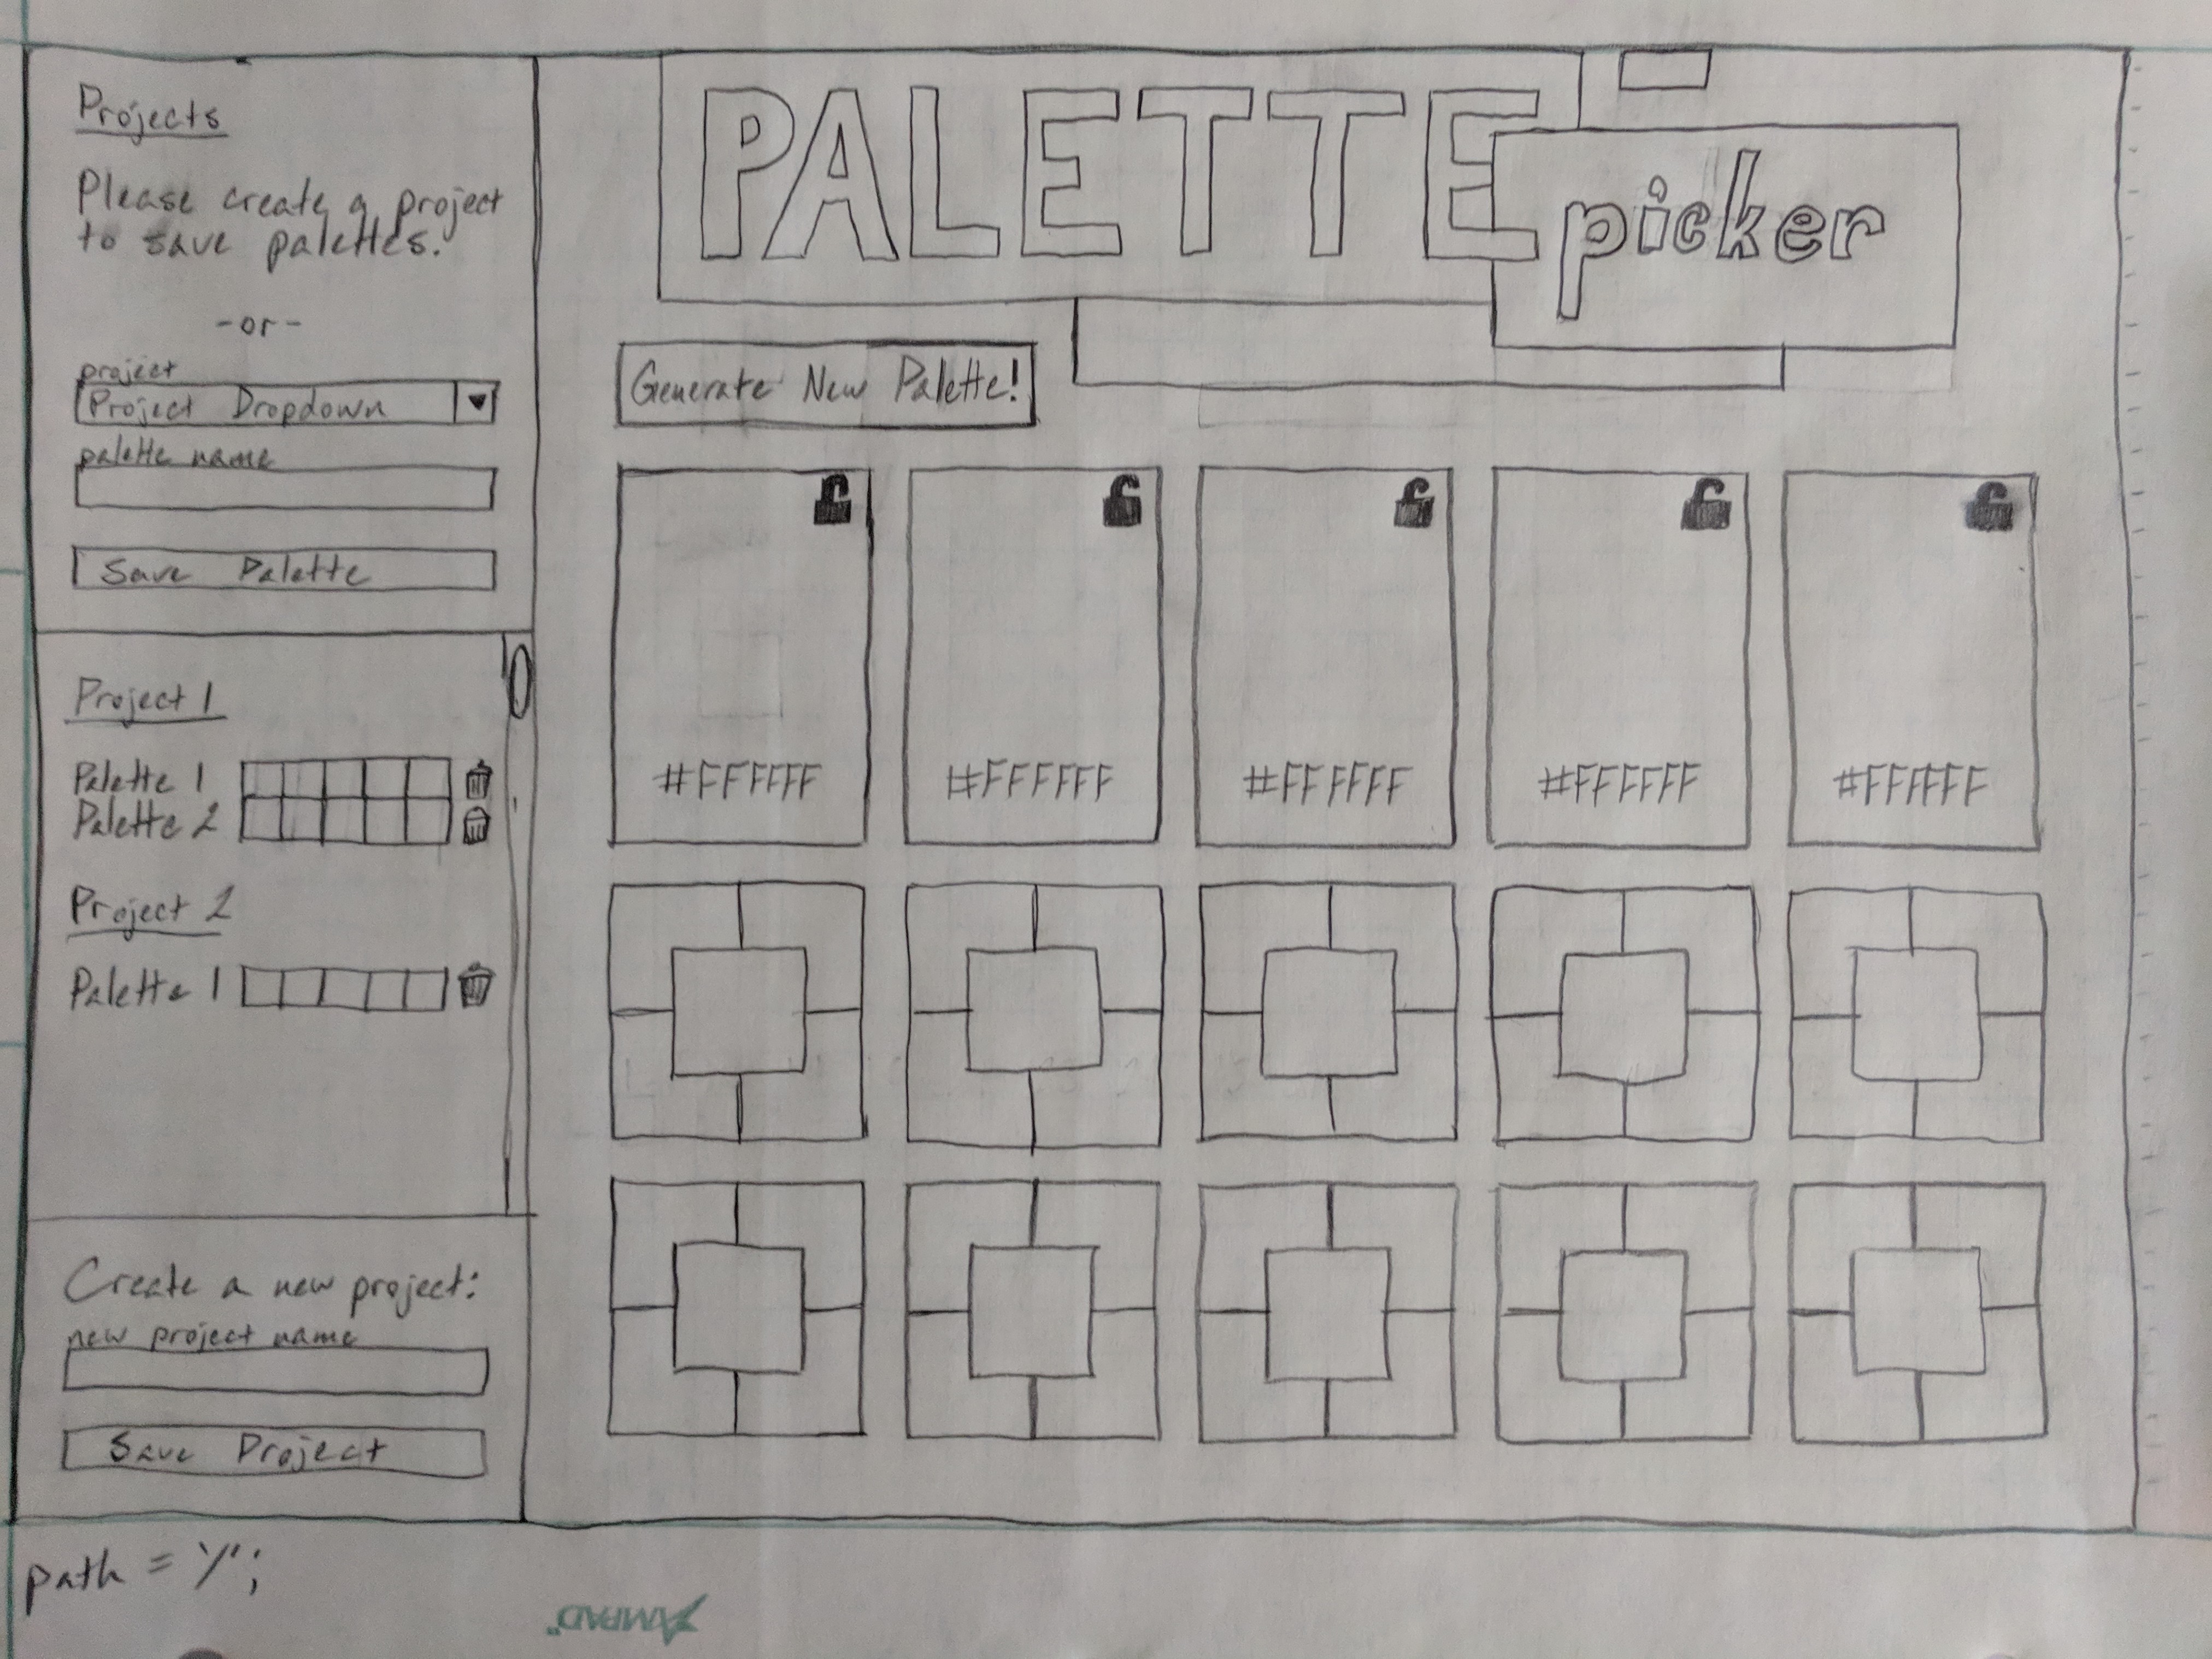 Projects
Please create a project
to save palettes.
-or-
project
Project Dropdown
palette name
Save Palette
Project 1
Palette 1
Palette 2
Project 2
Palette 1
Create a new project:
new project name
Save Project
PALETTE
picker
Generate New Palette!
#FFFFFF #FFFFFF #FFFFFF #FFFFFF #FFFFFF
path = '/';
AMPAD